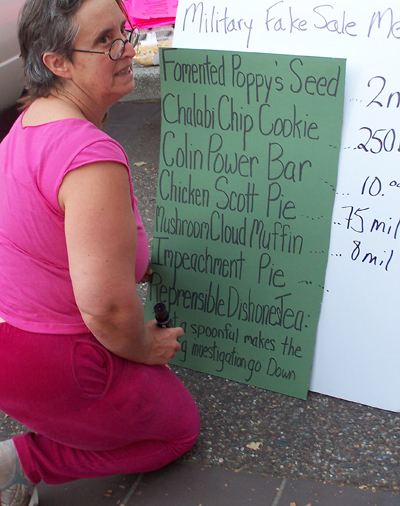 Military Fake Sale Me
Fomented Poppy's Seed
Chalabi Chip Cookie
Colin Power Bar
Chicken Scott Pie
Mushroom Cloud Muffin
Impeachment Pie
Reprensible DishonesTea:
a spoonful makes the
investigation go Down
250
10.00
75 mil
8 mil